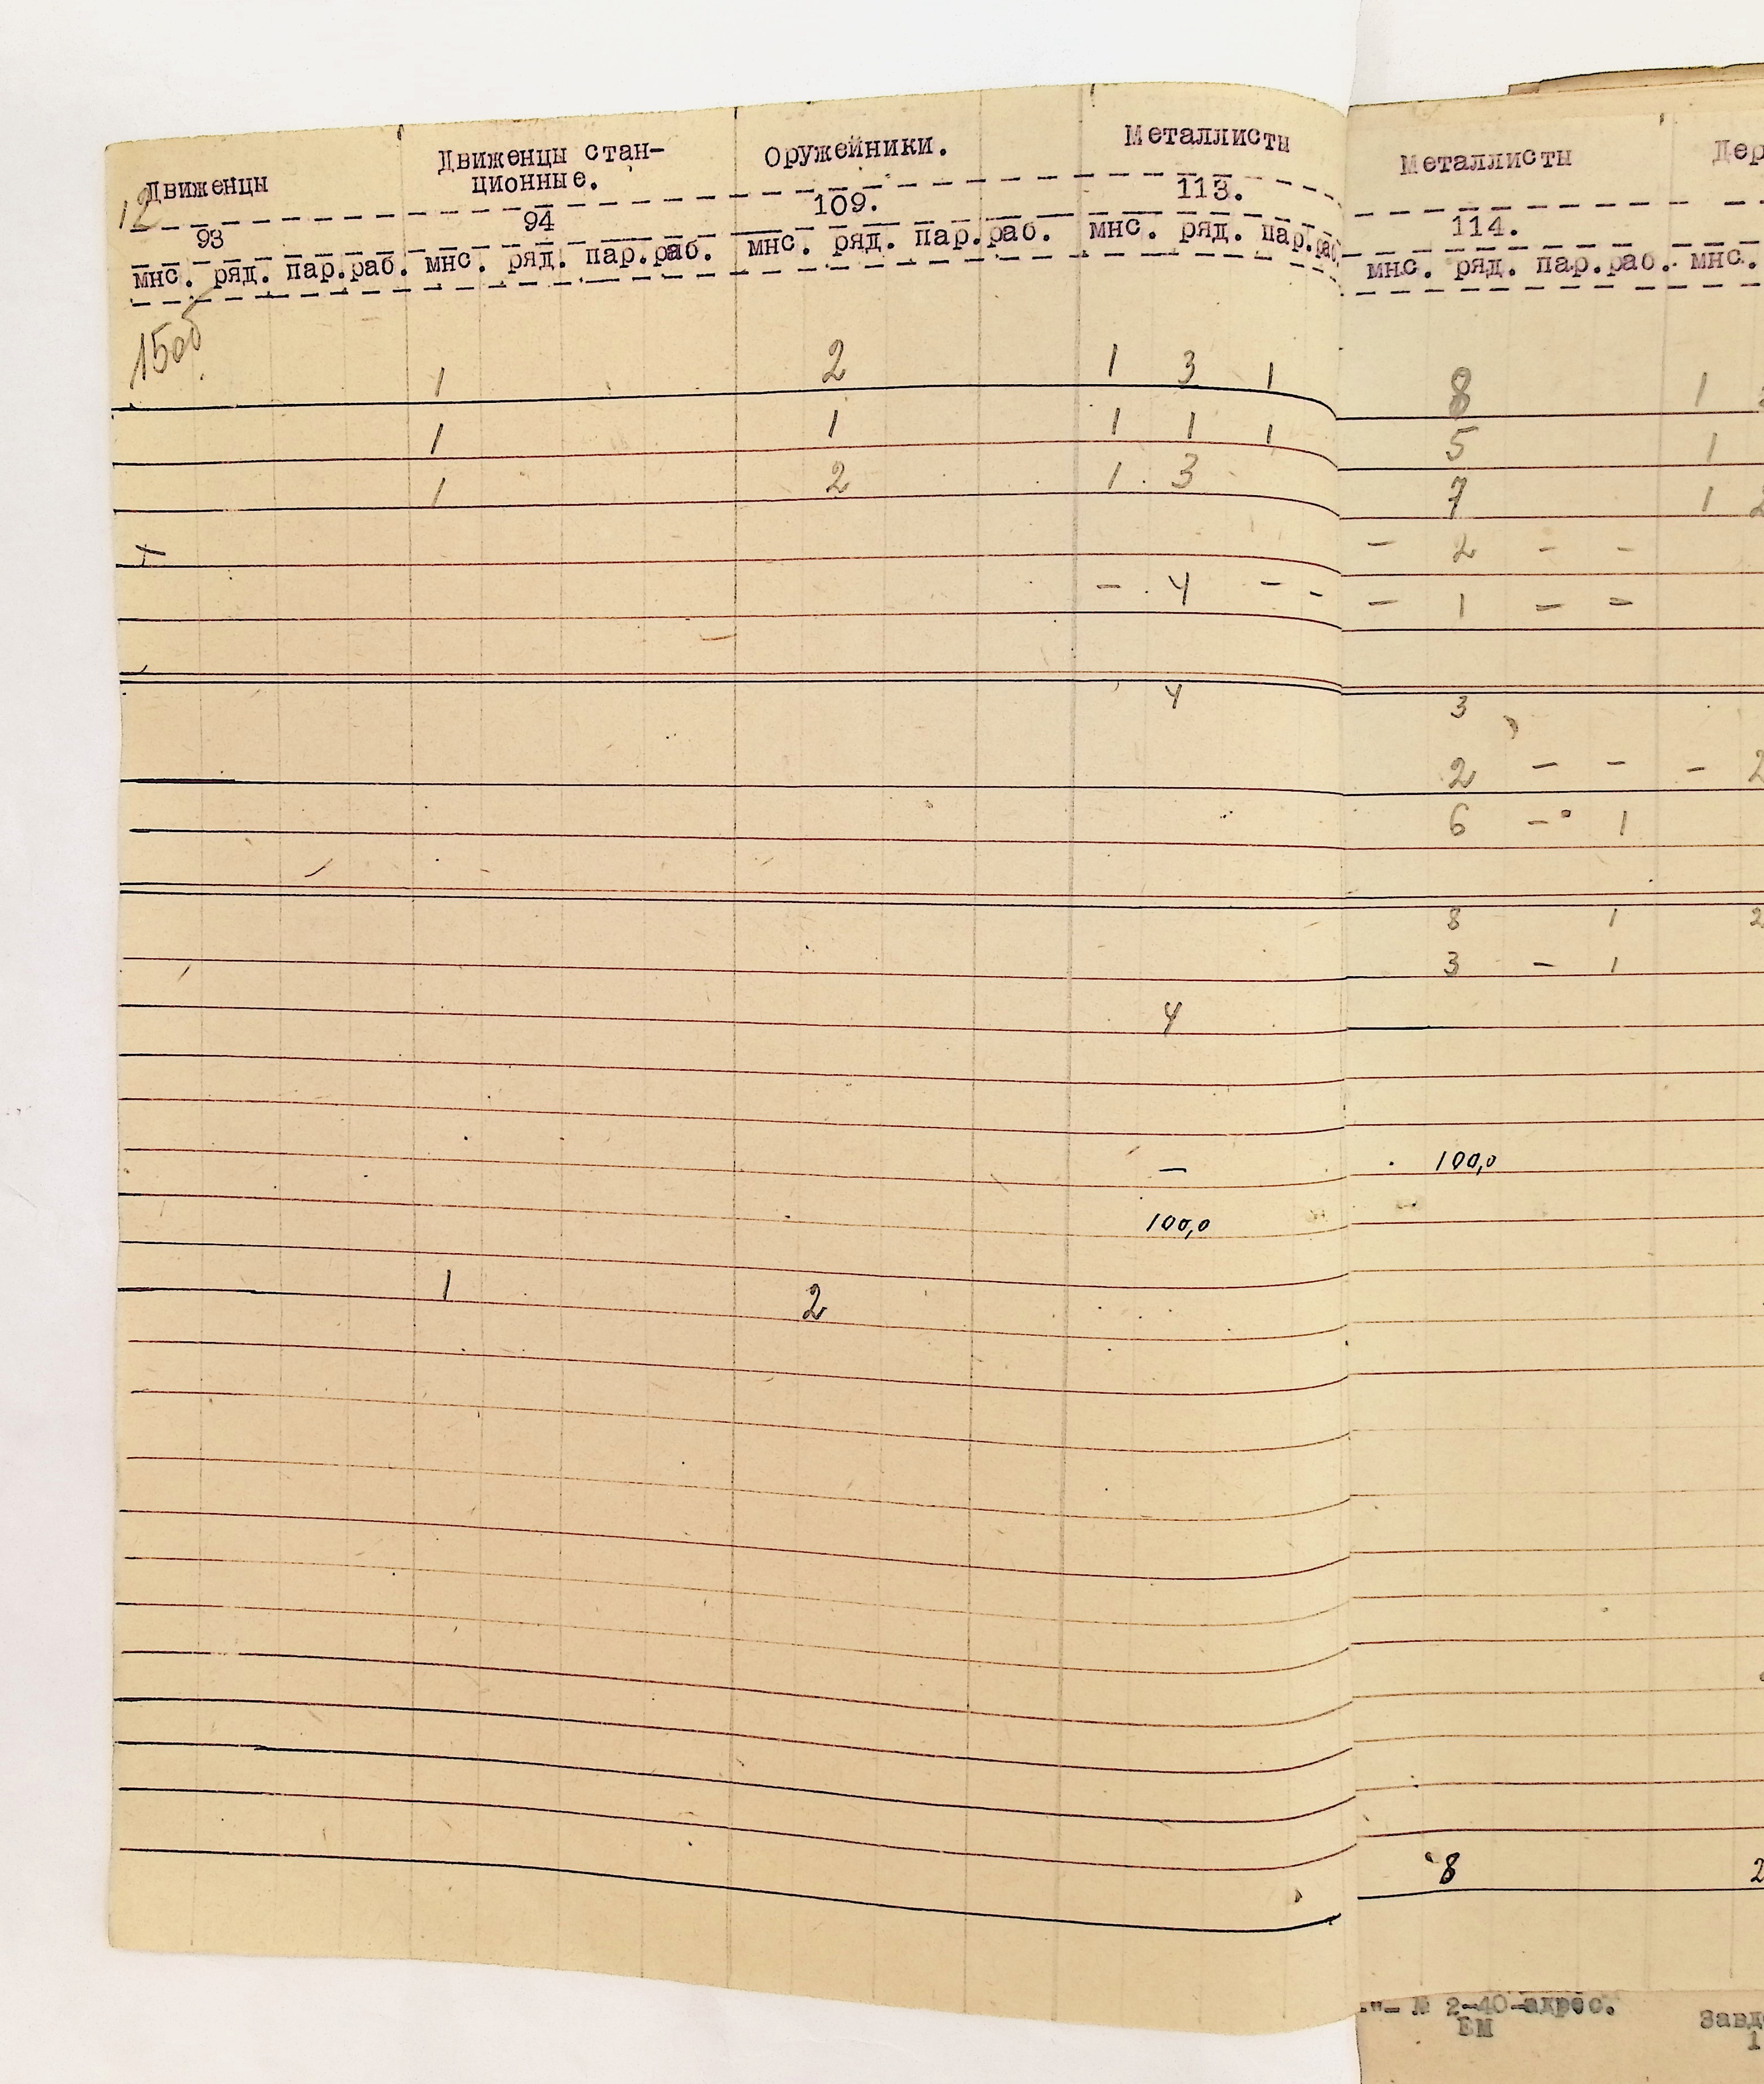 Движенцы Движенцы стан- Оружейники. Металлисты Металлисты
ционные.
12
93 94 109. 113. 114.
мнс. ряд. пар. раб. мнс. ряд. пар. раб. мнс. ряд. пар. раб. мнс. ряд. пар. раб. мнс. ряд. пар. раб. мнс.
150б
1 2 1 3 1 8 1
1 1 1 1 1 5 1
1 2 1 3 7 1 2
- 2 - -
- 4 - - - 1 - -
4 3
2 - - - 2
6 - 1
8 1 2
3 - 1
4
- 100,0
100,0
1 2
8 2
-"- № 2-40-адрес.
ЕМ